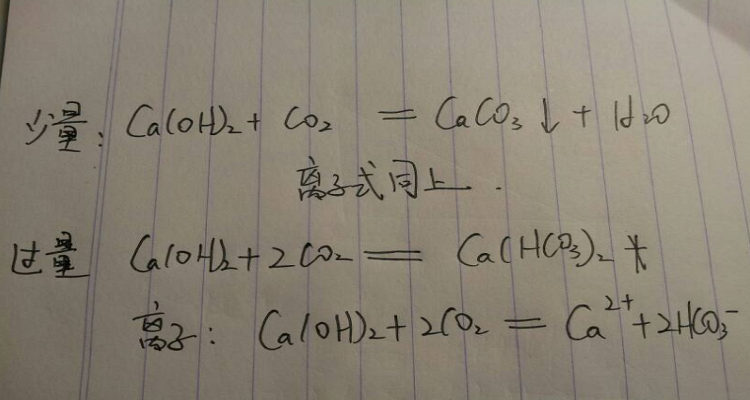 少量: Ca(OH)₂ + CO₂ = CaCO₃↓ + H₂O
离子式同上.
过量 Ca(OH)₂ + 2CO₂ = Ca(HCO₃)₂
离子: Ca(OH)₂ + 2CO₂ = Ca²⁺ + 2HCO₃⁻